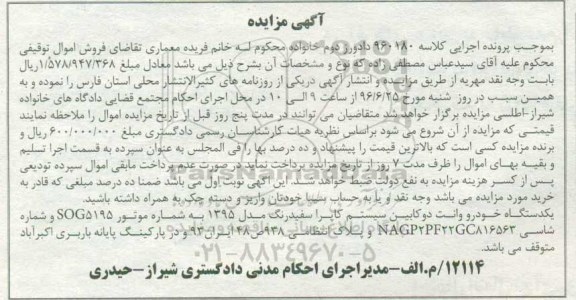 آگهی مزایده
بموجب پرونده اجرایی کلاسه ۹۶۰۱۸۰ دادورز دوم خانواده محکوم له خانم فریده معماری تقاضای فروش اموال توقیفی
محکوم علیه آقای سیدعباس مصطفی زاده که نوع و مشخصات آن بشرح ذیل می باشد معادل مبلغ ۱/۵۷۸/۹۴۷/۳۶۸ریال
بابت وجه نقد مهریه از طریق مزایده و انتشار آگهی دریکی از روزنامه های کثیرالانتشار محلی استان فارس را نموده و به
همین سبب در روز شنبه مورخ ۹۶/۶/۲۵ از ساعت ۹ الی ۱۰ در محل اجرای احکام مجتمع قضایی دادگاه های خانواده
شیراز-اطلسی مزایده برگزار خواهد شد متقاضیان می توانند در مدت پنج روز قبل از تاریخ مزایده اموال را ملاحظه نمایند
قیمتی که مزایده از آن شروع می شود براساس نظریه هیات کارشناسان رسمی دادگستری مبلغ ۶۰۰/۰۰۰/۰۰۰ ریال و
برنده مزایده کسی است که بالاترین قیمت را پیشنهاد و ده درصد بها را فی المجلس به عنوان سپرده به قسمت اجرا تسلیم
و بقیه بهای اموال را ظرف مدت ۷ روز از تاریخ مزایده پرداخت نماید در صورت عدم پرداخت مابقی اموال سپرده تودیعی
پس از کسر هزینه مزایده به نفع دولت ضبط خواهد شد. این آگهی نوبت اول می باشد ضمنا ده درصد مبلغی که قادر به
خرید مورد مزایده می باشد وجه نقد و یا به حساب سیبا خودتان واریز و دسته چک به همراه داشته باشید.
یکدستگاه خودرو وانت دوکابین سیستم کاپرا سفیدرنگ مدل ۱۳۹۵ به شماره موتور SOG۵۱۹۵ و شماره
شاسی NAGP۲PF۲۲GC۸۱۶۵۶۳ و پلاک انتظامی ۹۳۸ص۴۸ ایران۹۳ و در پارکینگ پایانه باربری اکبرآباد
متوقف می باشد.
۱۲۱۱۴/م.الف-مدیراجرای احکام مدنی دادگستری شیراز-حیدری
ParsNamadData
۰۲۱-۸۸۳۴۹۶۷۰-۵